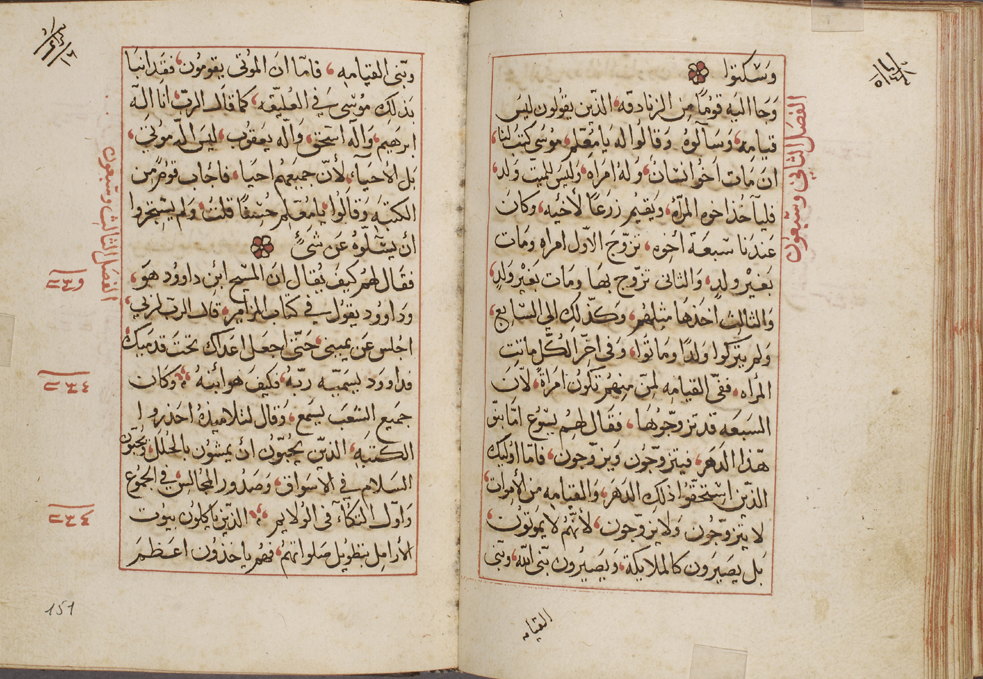 وسكتوا
وجا اليه قومًا من الزنادقه الذين يقولون ليس
قيامه وسالوه وقالوا له يا معلم موسى كتب لنا
ان مات اخو انسان وله امراه وليس للميت ولد
فلياخذ اخوه المراه ويقيم زرعًا لأخيه وكان
عندنا سبعة اخوه تزوج الاول امراه ومات
بغير ولد والثانى تزوج بها ومات بغير ولد
والثالث اخذها مثلهم وكذلك الى السابع
ولم يتركوا ولدًا وماتوا وفى اخر الكل ماتت
المراه ففى القيامه لمن منهم تكون امراة لان
السبعه قد تزوجوها فقال لهم يسوع امّا بنى
هذا الدهر فيتزوجون ويزوجون فامّا اوليك
الذين استحقوا ذلك الدهر والقيامه من الأموات
لا يتزوجون ولا يزوجون لأنهم لا يموتون
بل يصيرون كالملايكة ويصيرون بنى الله وبنى
القيامه
الفصل الثانى وسبعون
وبنى القيامه فامّا ان الموتى يقومون فقد انبا
بذلك موسى فى العليقه كما قال الرب انا اله
ابرهيم واله اسحق واله يعقوب ليس اله موتى
بل الاحيا لأن جميعهم احيا فاجاب قوم من
الكتبه وقالوا يا معلم حسنًا قلت ولم يستجروا
أن يسئلوه عن شئ
فقال لهم كيف يقال ان المسيح ابن داوود هو
وداوود يقول فى كتاب المزامير قال الرب لربى
اجلس عن يمينى حتى اجعل اعداك تحت قدميك
فداوود يسميه ربّه فكيف هو ابنه وكان
جميع الشعب يسمع وقال لتلاميذه احذروا
الكتبه الذين يحبون أن يمشون بالحلل ويحبون
السلام فى الاسواق وصدور المجالس فى الجموع
واول المتكاة فى الولايم الذين ياكلون بيوت
الأرامل بتطويل صلواتهم فهم ياخذون اعظم
الفصل الثالث وسبعون
151